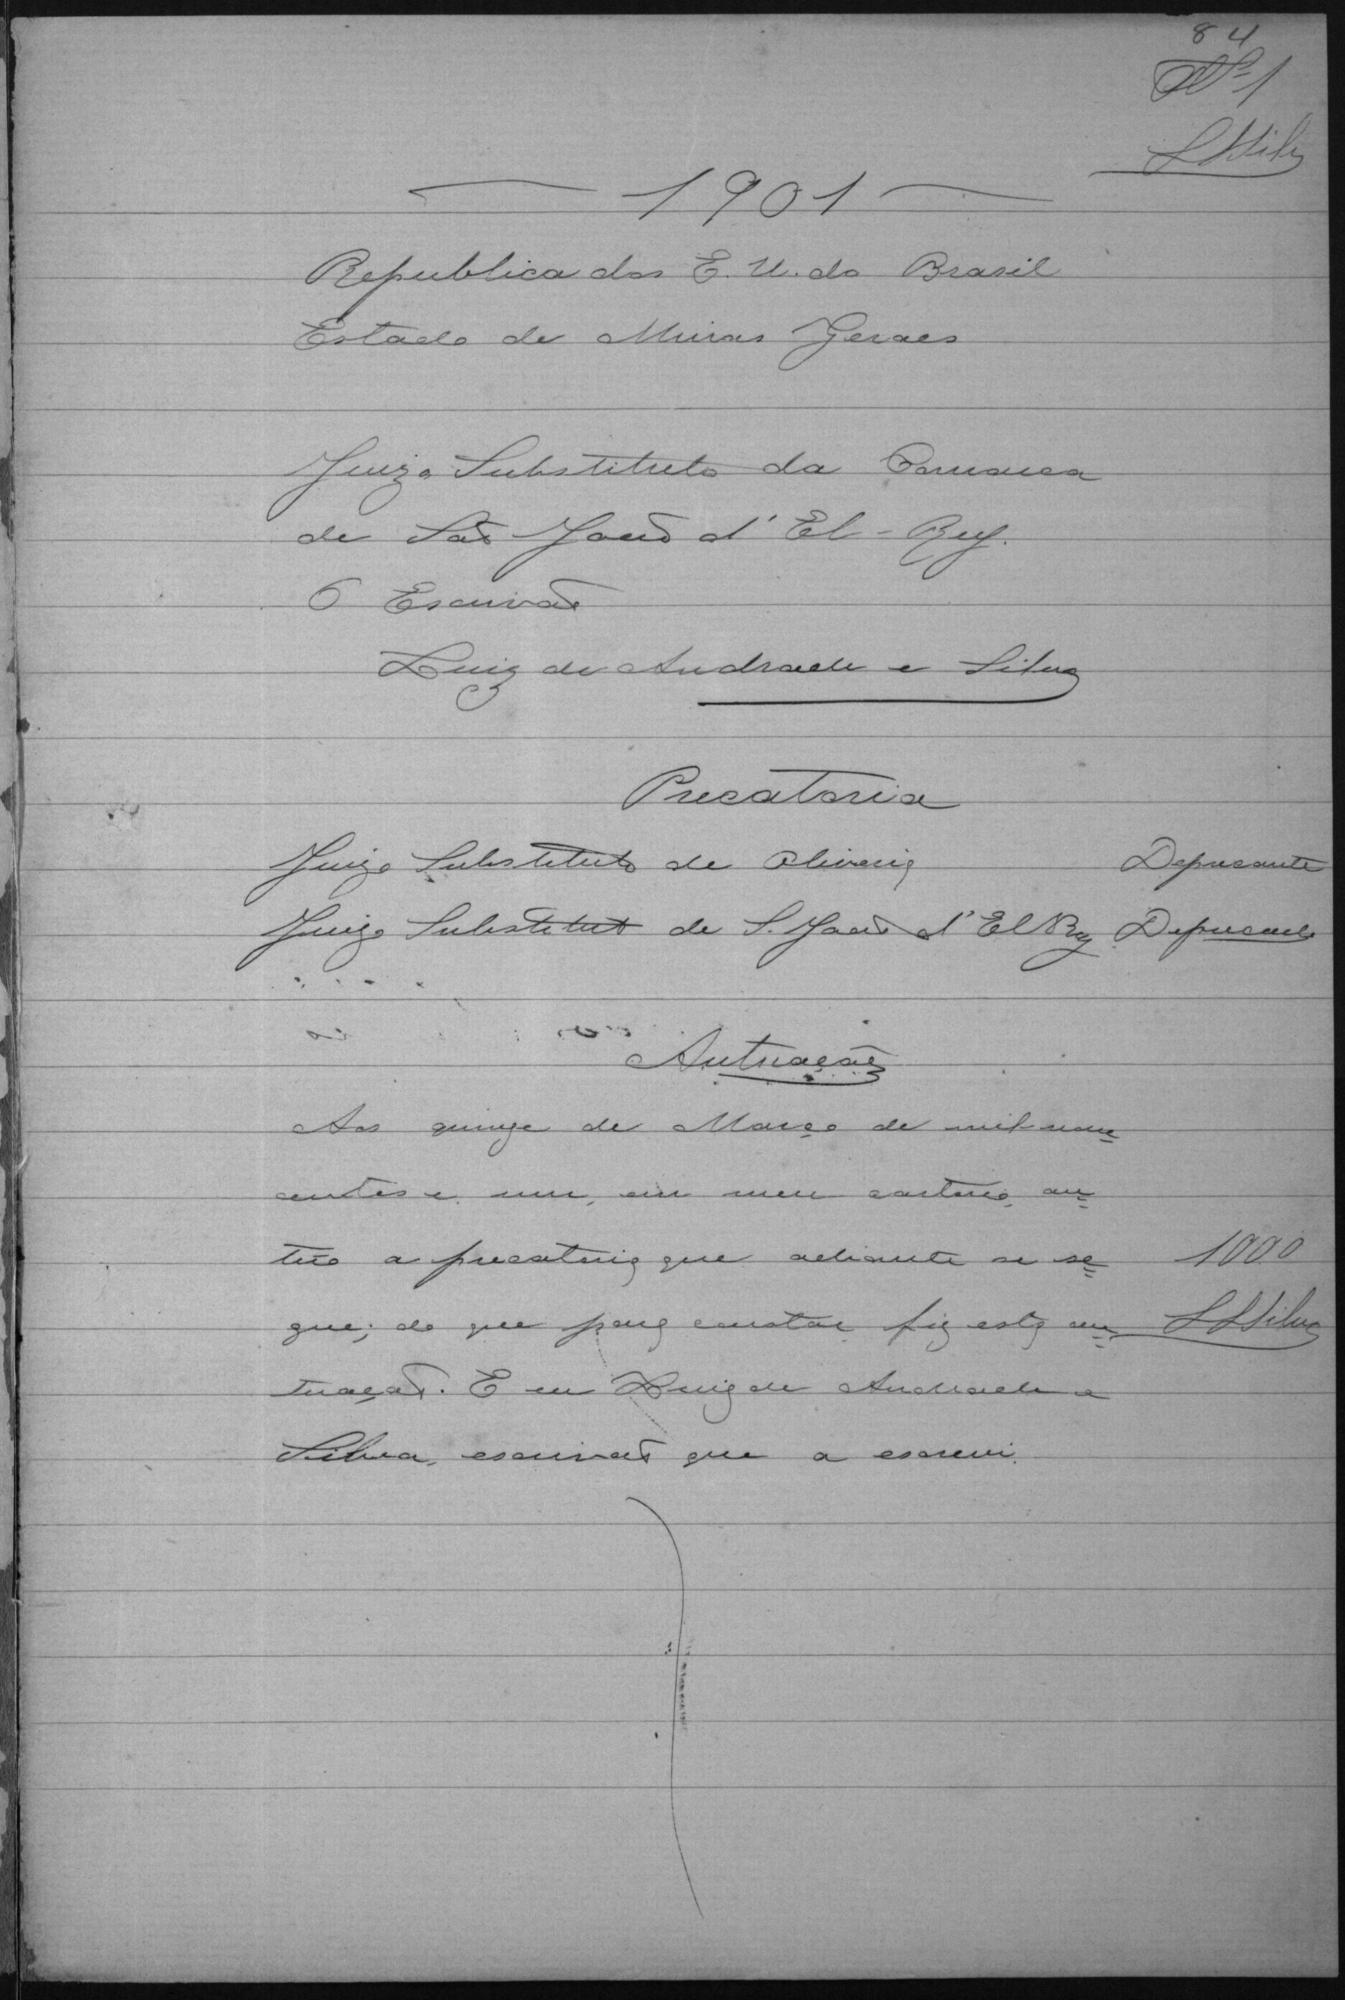 84
Nº 1
LASilva
1901
Republica dos E. U. do Brasil
Estado de Minas Geraes
Juizo Substituto da Comarca
de São João d'El-Rey.
O Escrivão
Luiz de Andrade e Silva
Precatoria
Juizo Substituto de Oliveira Deprecante
Juizo Substituto de S. João d'El Rey Deprecado
Autuação
Aos quinze de Março de mil nove=
centos e um, em meu cartorio, au=
túo a precatoria que adiante se se= 1000
gue; do que para constar fiz esta au= LASilva
tuação. E eu Luiz de Andrade e
Silva, escrivão que a escrevi.